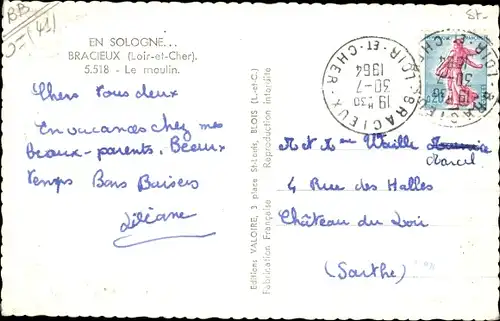 BB
J=(41)
St-
EN SOLOGNE...
BRACIEUX (Loir-et-Cher).
5.518 - Le moulin.
Chers tous deux
En vacances chez mes
beaux-parents. Beau
temps Bons Baisers
Liliane
Editions VALOIRE, 3 place St-Louis, BLOIS (L.-et-C.)
Fabrication Française Reproduction interdite
BRACIEUX LOIR-ET-CHER
19H30
30-7
1964
M et Mme Waille
Marcel
4 Rue des Halles
Château du Loir
(Sarthe)